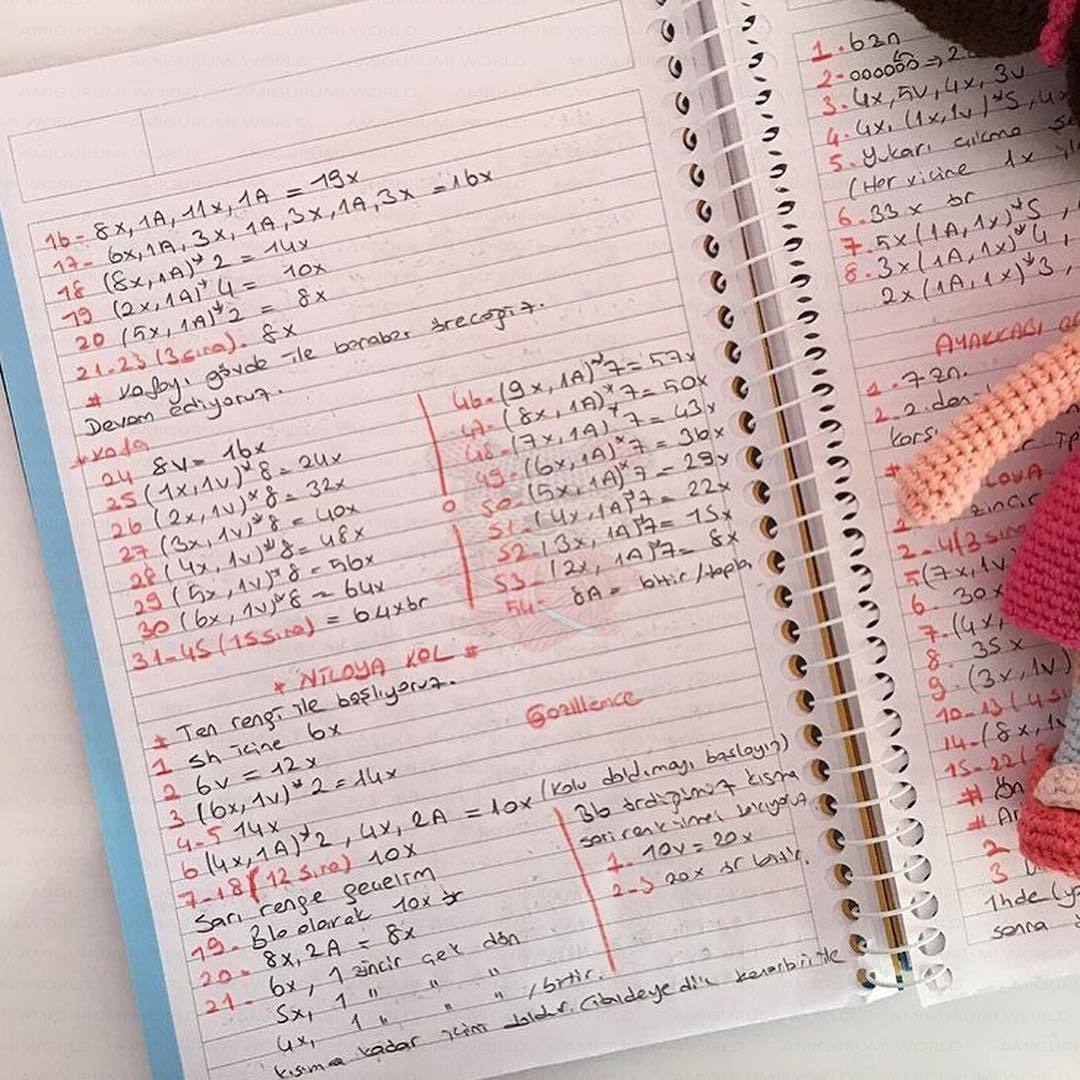 16- 8x, 1A, 11x, 1A = 19x
17- 6x, 1A, 3x, 1A, 3x, 1A, 3x = 16x
18 (8x, 1A)*2 = 14x
19 (2x, 1A)*4 = 10x
20 (5x, 1A)*2 = 8x
21-23 (3 sıra). 8x
* Kafayı gövde ile beraber öreceğiz.
Devam ediyoruz.
* Kafa
24 8v = 16x
25 (1x, 1v)*8 = 24x
26 (2x, 1v)*8 = 32x
27 (3x, 1v)*8 = 40x
28 (4x, 1v)*8 = 48x
29 (5x, 1v)*8 = 56x
30 (6x, 1v)*8 = 64x
31-45 (15 sıra) = 64x br
46- (9x, 1A)*7 = 57x
47- (8x, 1A)*7 = 50x
48- (7x, 1A)*7 = 43x
49- (6x, 1A)*7 = 36x
50- (5x, 1A)*7 = 29x
51- (4x, 1A)*7 = 22x
52- (3x, 1A)*7 = 15x
53- (2x, 1A)*7 = 8x
54- 8A = bitir / topla
* NİLOYA KOL *
* Ten rengi ile başlıyoruz.
1 Sh içine 6x
2 6v = 12x
3 (6x, 1v)*2 = 14x
4-5 14x
6 (4x, 1A)*2, 4x, 2A = 10x (kolu doldurmayı başlayın)
7-18 (12 sıra) 10x
Sarı renge geçelim
19- Blo olarak 10x ör
20- 8x, 2A = 8x
21- 6x, 1 zincir çek dön
5x, 1 " " "
4x, 1 " " " / bitir.
Gozillence
Blo ördüğümüz kısma
sarı renk
1- 10v = 20x
2-3 20x ör bitir.
kısıma kadar için doldur.
1. 6zn
2- oooooo => 2
3. 4x, 5v, 4x, 3v
4. 4x, (1x, 1v)*5, 4x
5. Yukarı çıkma
(Her içine 1x
6. 33x br
7. 5x (1A, 1x)*5,
8. 3x (1A, 1x)*4,
2x (1A, 1x)*3,
AYAKKABI
1. 7zn.
2. 2.den
zincir
2-4 (3 sıra
5 (7x, 1v
6. 30x
7. (4x,
8. 35x
9. (3x, 1v)
10-13 (4 sı
14- (8x, 1v
15-22 (
2
3
1hde
sonra
AMIGURUMI WORLD